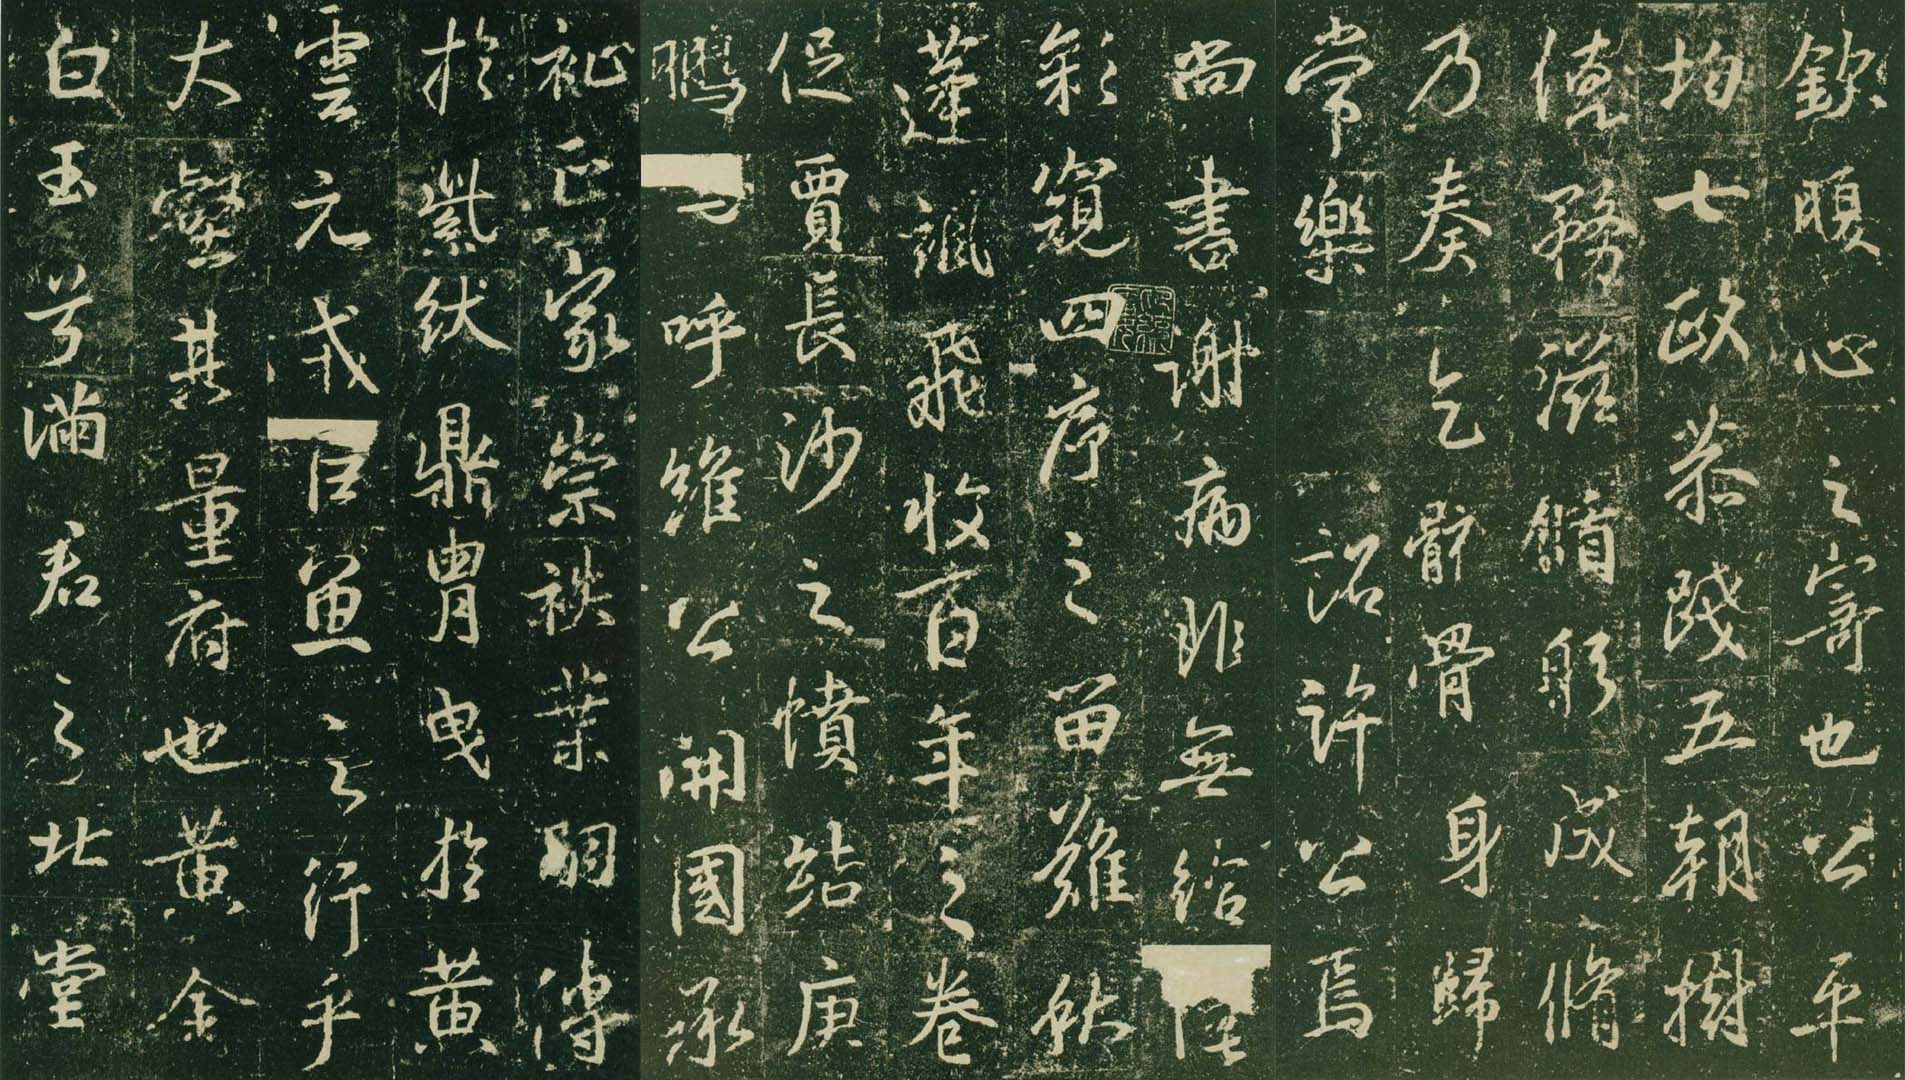 欽腹心之寄也公平
均七政恭踐五朝樹
德務滋飾躬咸脩
乃奏乞骸骨身歸
常樂詔許公焉
尚書謝病非無給
彩窺四序之留難就
蓬諷飛收百年之卷
促賈長沙之憤結庚
呼維公開國承
祉正家崇袟葉嗣傳
於紫紱鼎胄曳於黃
雲元戎巨魚之行乎
大壑其量府也黃金
白玉兮滿君之北堂